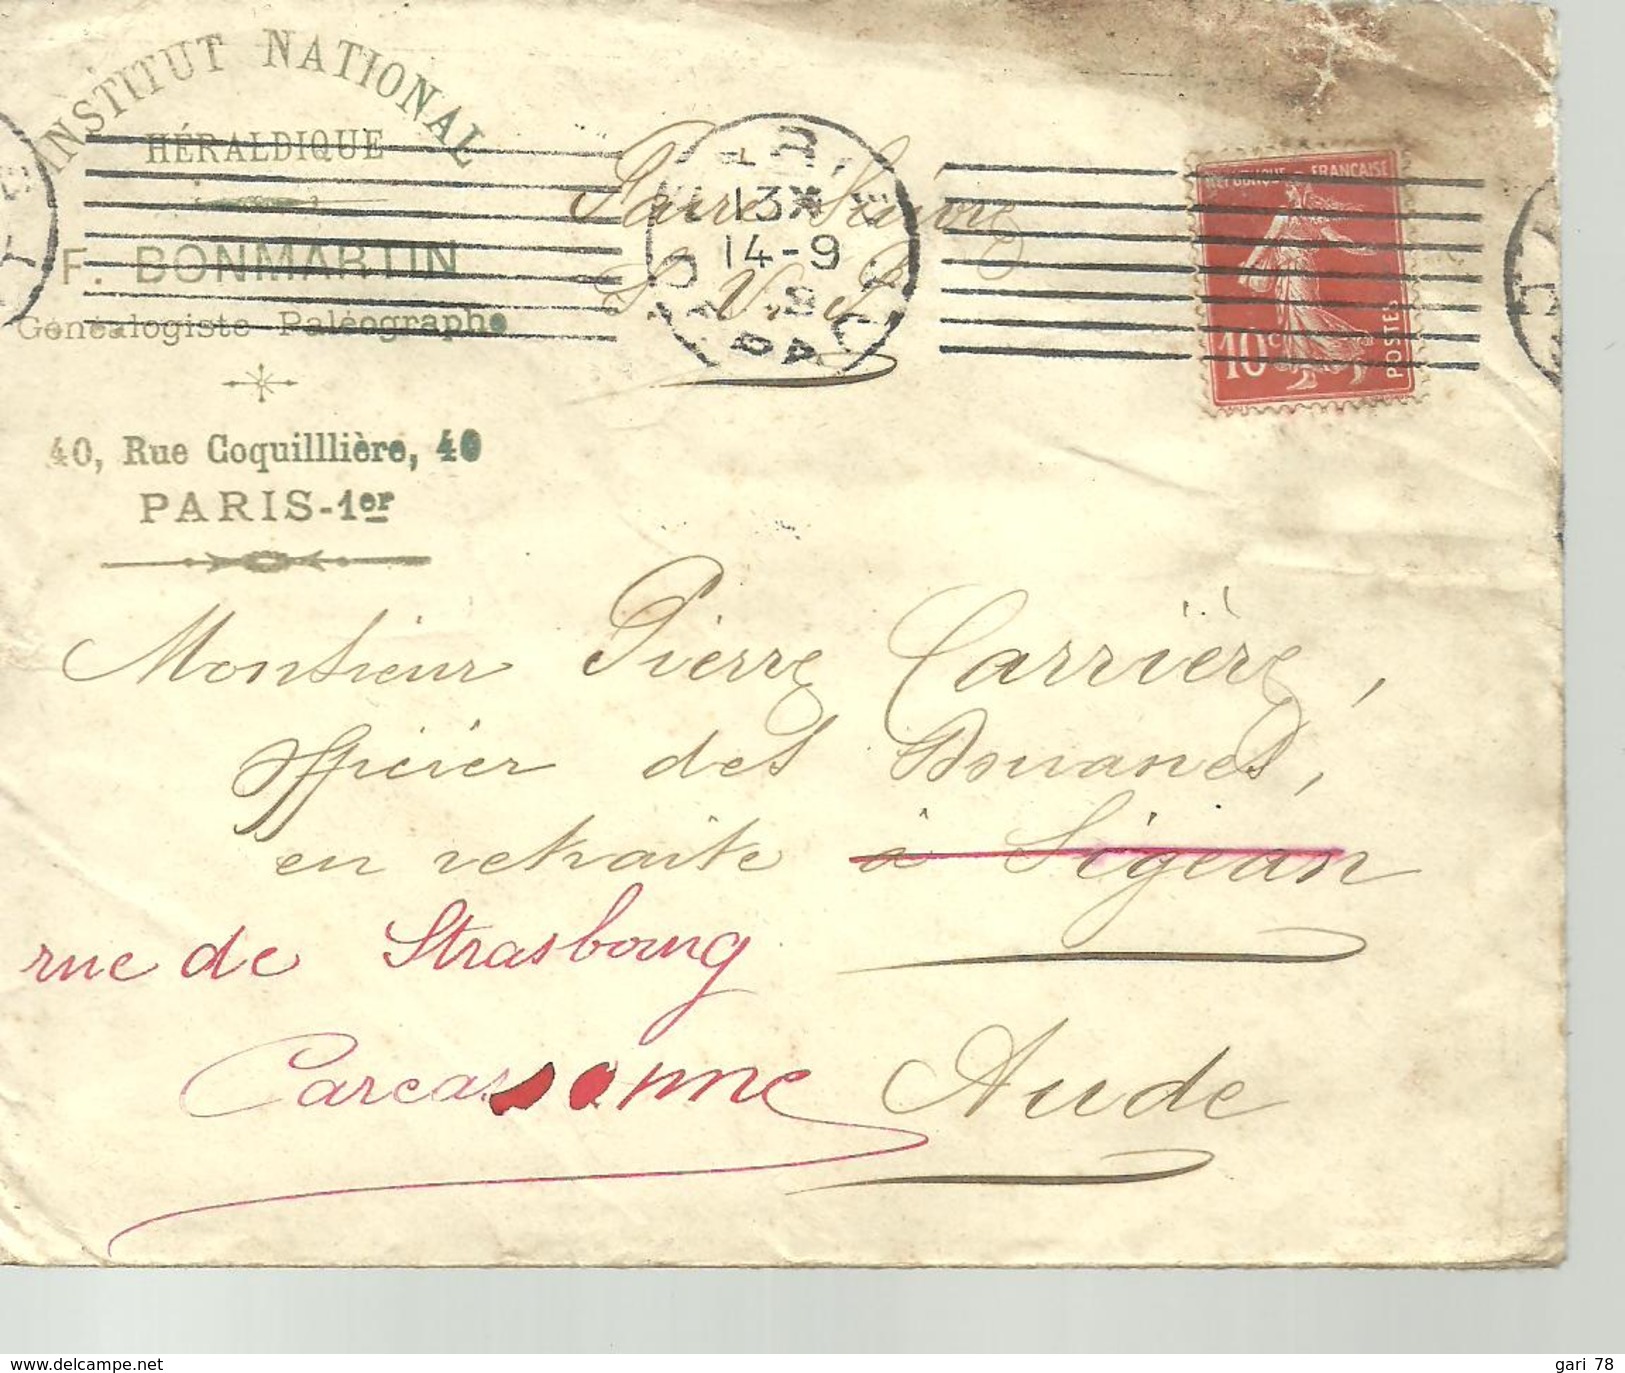 INSTITUT NATIONAL
HÉRALDIQUE
F. BONMARTIN
Généalogiste Paléographe
40, Rue Coquilllière, 40
PARIS-1er
Faire Suivre
S. V. P.
13 X
14-9
RÉPUBLIQUE FRANÇAISE
10c
POSTES
Monsieur Pierre Carrière,
officier des Douanes,
en retraite à Sigean
rue de Strasbourg
Carcassonne Aude
www.delcampe.net
gari 78